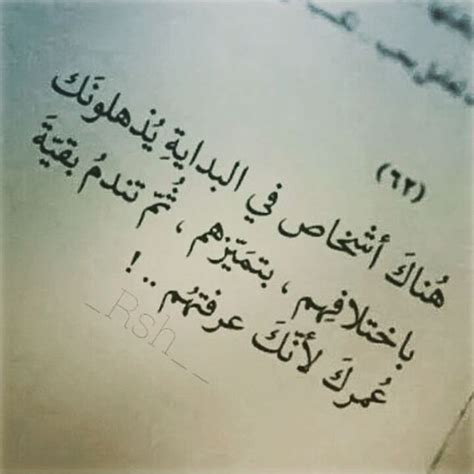 (٦٢)
هُناكَ أشخاص في البدايةِ يُذهلونَك
باختلافِهم ، بتمَيّزهم ، ثُمّ تندمُ بقيّةَ
عُمركَ لأنّكَ عرفتهُم ..!
_Rsh__